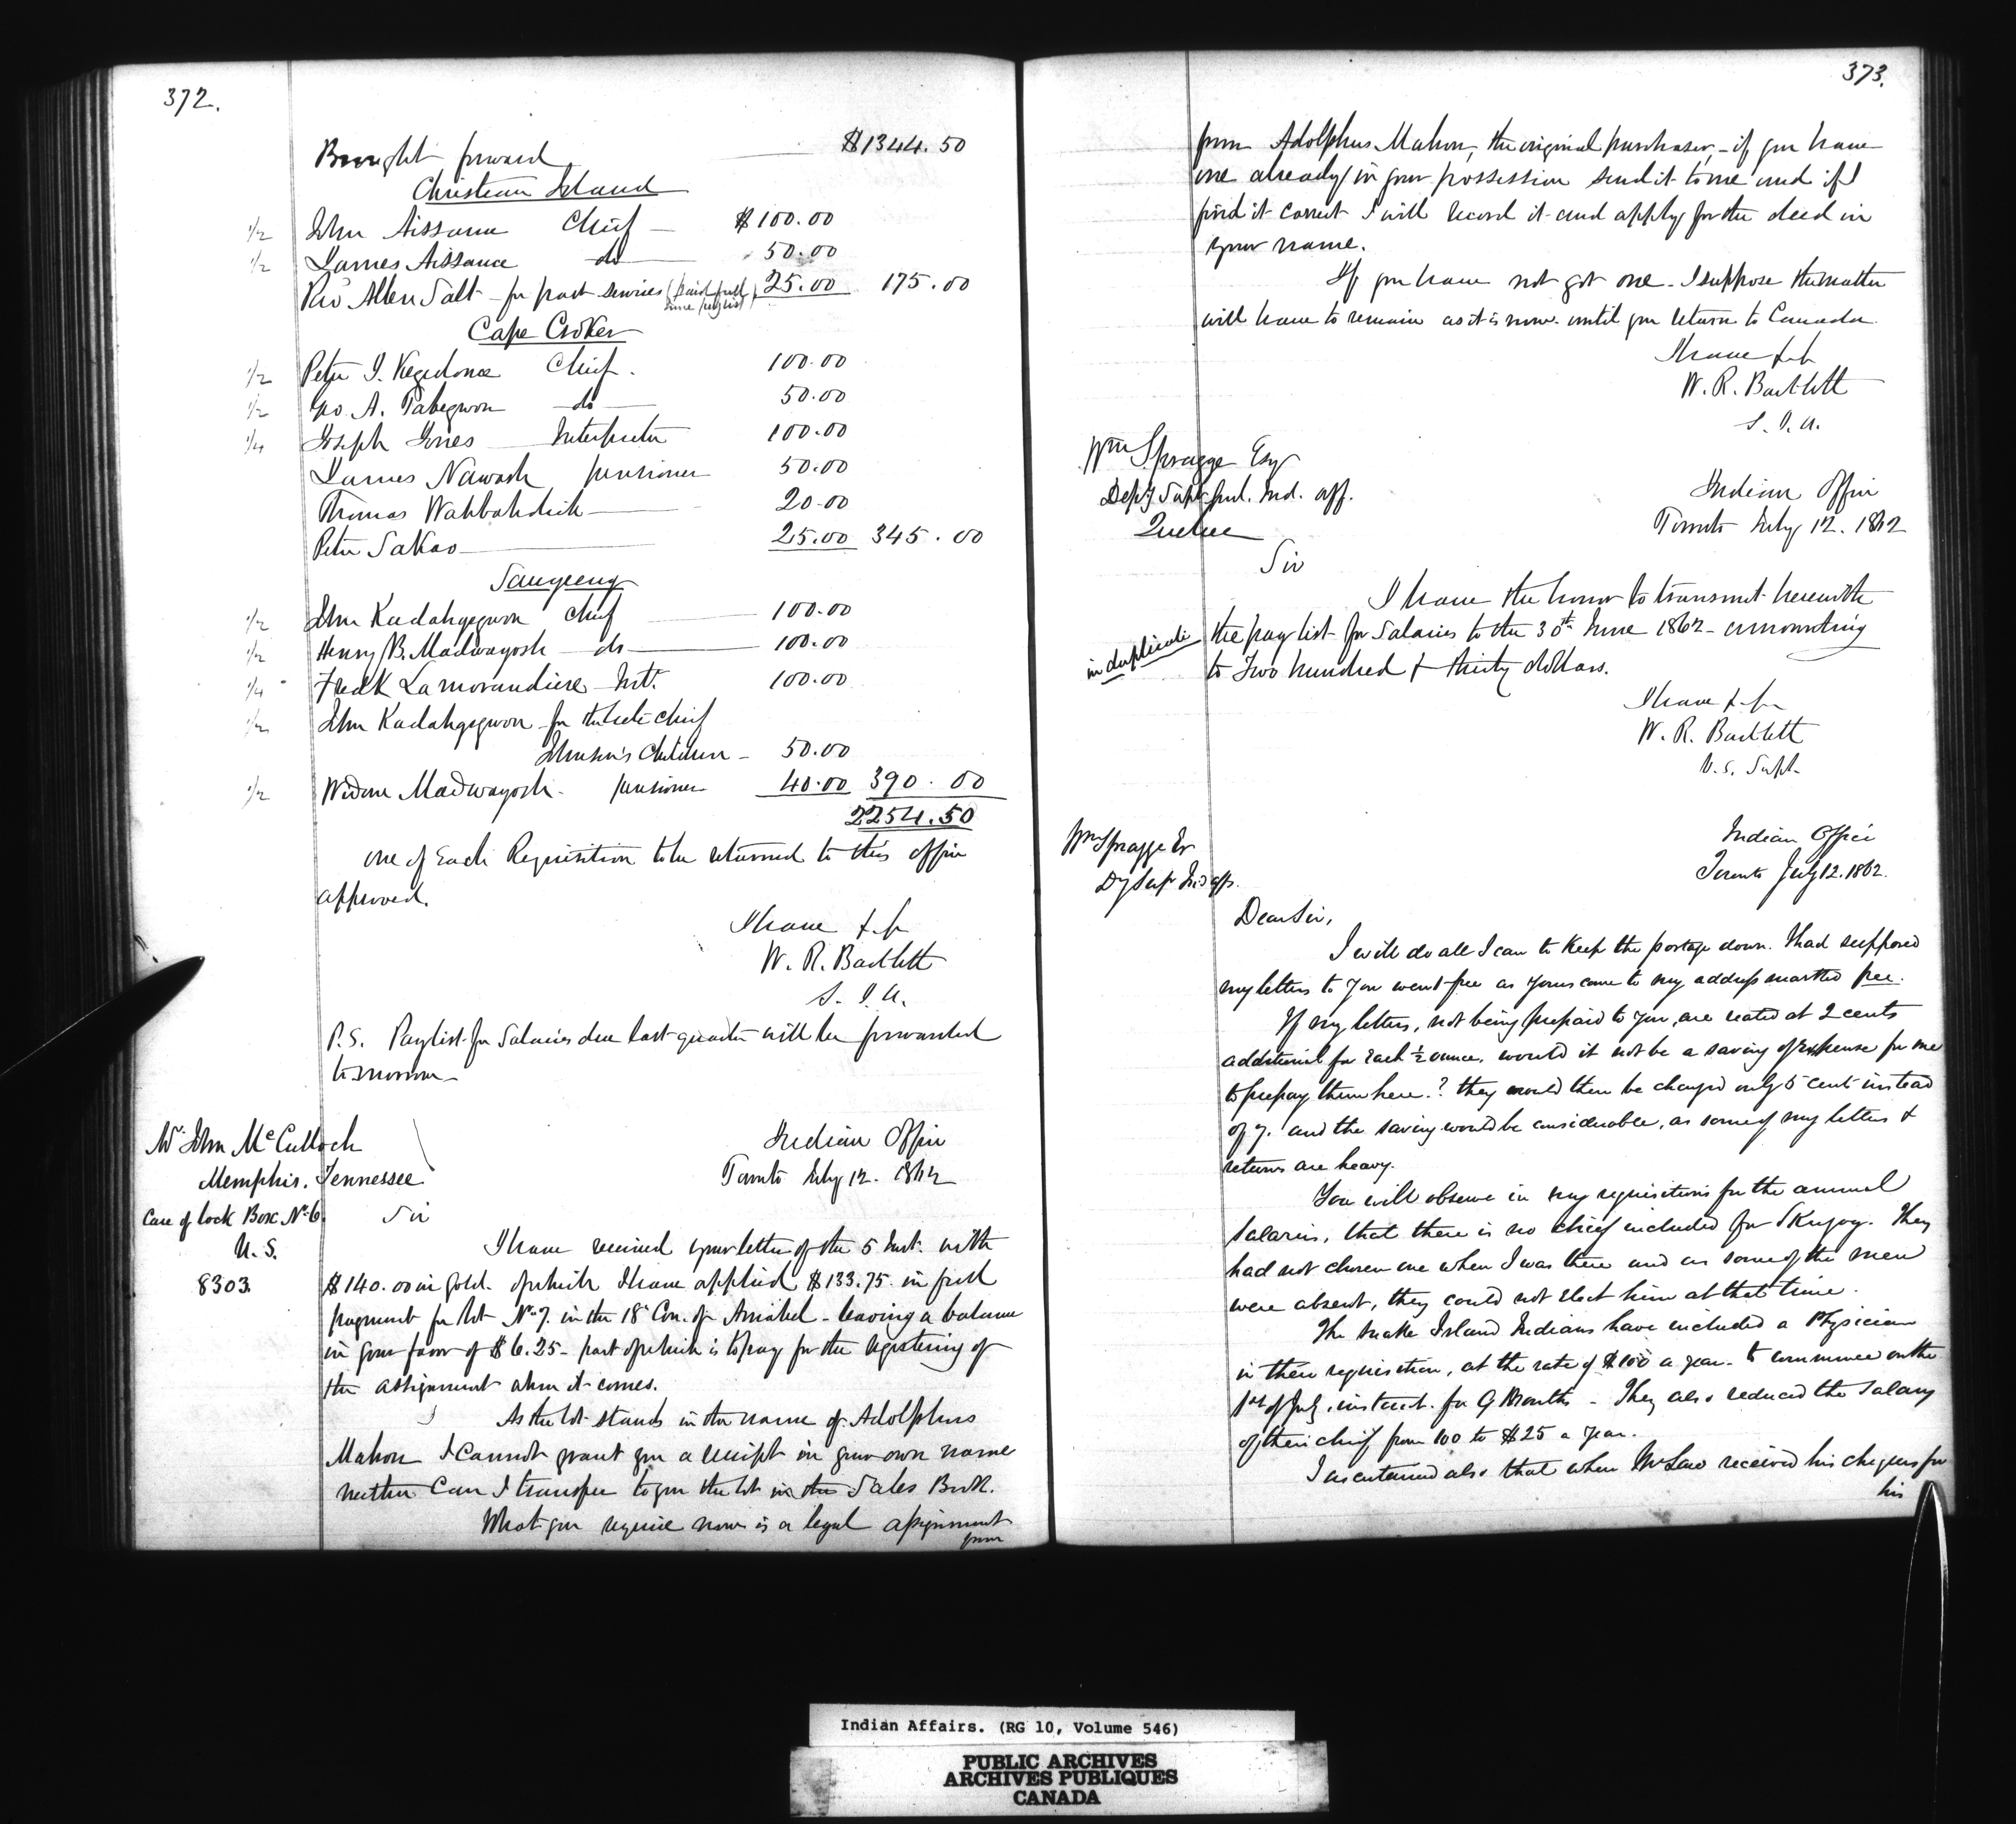 372.
Brought forward $1344.50
Christian Island
1/2 John Aissance Chief $100.00
1/2 James Aissance do 50.00
Rev Allen Salt - for past services (paid full since (reg list) 25.00 175.00
Cape Croker
1/2 Peter J. Kegedonce Chief. 100.00
1/2 Geo. A. Tabegwon do 50.00
1/4 Joseph Jones Interpreter 100.00
James Nawash pensioner 50.00
Thomas Wahbahdick 20.00
Peter Sakao 25.00 345.00
Saugeeng
1/2 John Kadahgegwon Chief 100.00
1/2 Henry B. Madwayosh do 100.00
1/4 Fredk Lamorandiere Int. 100.00
1/2 John Kadahgegwon for the late Chief
Johnson's Children - 50.00
1/2 Widow Madwayosh - pensioner 40.00 390.00
2254.50
one of Each Requisition to be returned to this office
approved.
I have &c
W. R. Bartlett
S. I. A.
P.S. Paylist for Salaries due last quarter will be forwarded
tomorrow
Mr John McCulloch
Memphis, Tennessee
Care of lock Box No 6
U. S.
8303.
Indian Office
Toronto July 12. 1862
Sir
I have received your letter of the 5 Inst. with
$140.00 in gold. of which I have applied $133.75 in full
payment for lot No 7. in the 18 Con. of Amabel - leaving a balance
in your favor of $6.25 - part of which is to pay for the registering of
the assignment when it comes.
As the lot stands in the name of Adolphus
Mahon I cannot grant you a receipt in your own name
neither Can I transfer to you the lot in the Sales Book.
What you require now is a legal assignment
from
373.
from Adolphus Mahon, the original purchaser, - if you have
one already in your possession send it to me and if I
find it correct I will record it and apply for the deed in
your name.
If you have not got one - I suppose the matter
will have to remain as it is now until you return to Canada.
I have &c
W. R. Bartlett
S. I. A.
Wm Spragge Esq
Depy Supt Genl. Ind. Aff.
Quebec
Indian Office
Toronto July 12. 1862
Sir
I have the honor to transmit herewith
in duplicate the pay list for Salaries to the 30th June 1862 - amounting
to Two hundred & thirty dollars.
I have &c
W. R. Bartlett
V. S. Supt.
Wm Spragge Esr
Dy Supt Ind affs.
Indian Office
Toronto July 12. 1862.
Dear Sir,
I will do all I can to Keep the postage down. I had supposed
my letters to you went free as yours came to my address marked free.
If my letters, not being prepaid to you, are rated at 2 cents
additional for each ½ ounce, would it not be a saving of expense for me
to prepay them here? they would then be charged only 5 cents instead
of 7. and the saving would be considerable, as some of my letters &
returns are heavy.
You will observe in my requisitions for the annual
salaries, that there is no chief included for Skugog. They
had not chosen one when I was there and as some of the men
were absent, they could not elect him at that time.
The Snake Island Indians have included a Physician
in their requisition, at the rate of $100 a year - to commence on the
1st of July, instant. for 9 Months - They also reduced the Salary
of their chief from 100 to $25 a year.
I ascertained also that when Mr Law received his cheques for
his
Indian Affairs. (RG 10, Volume 546)
PUBLIC ARCHIVES
ARCHIVES PUBLIQUES
CANADA